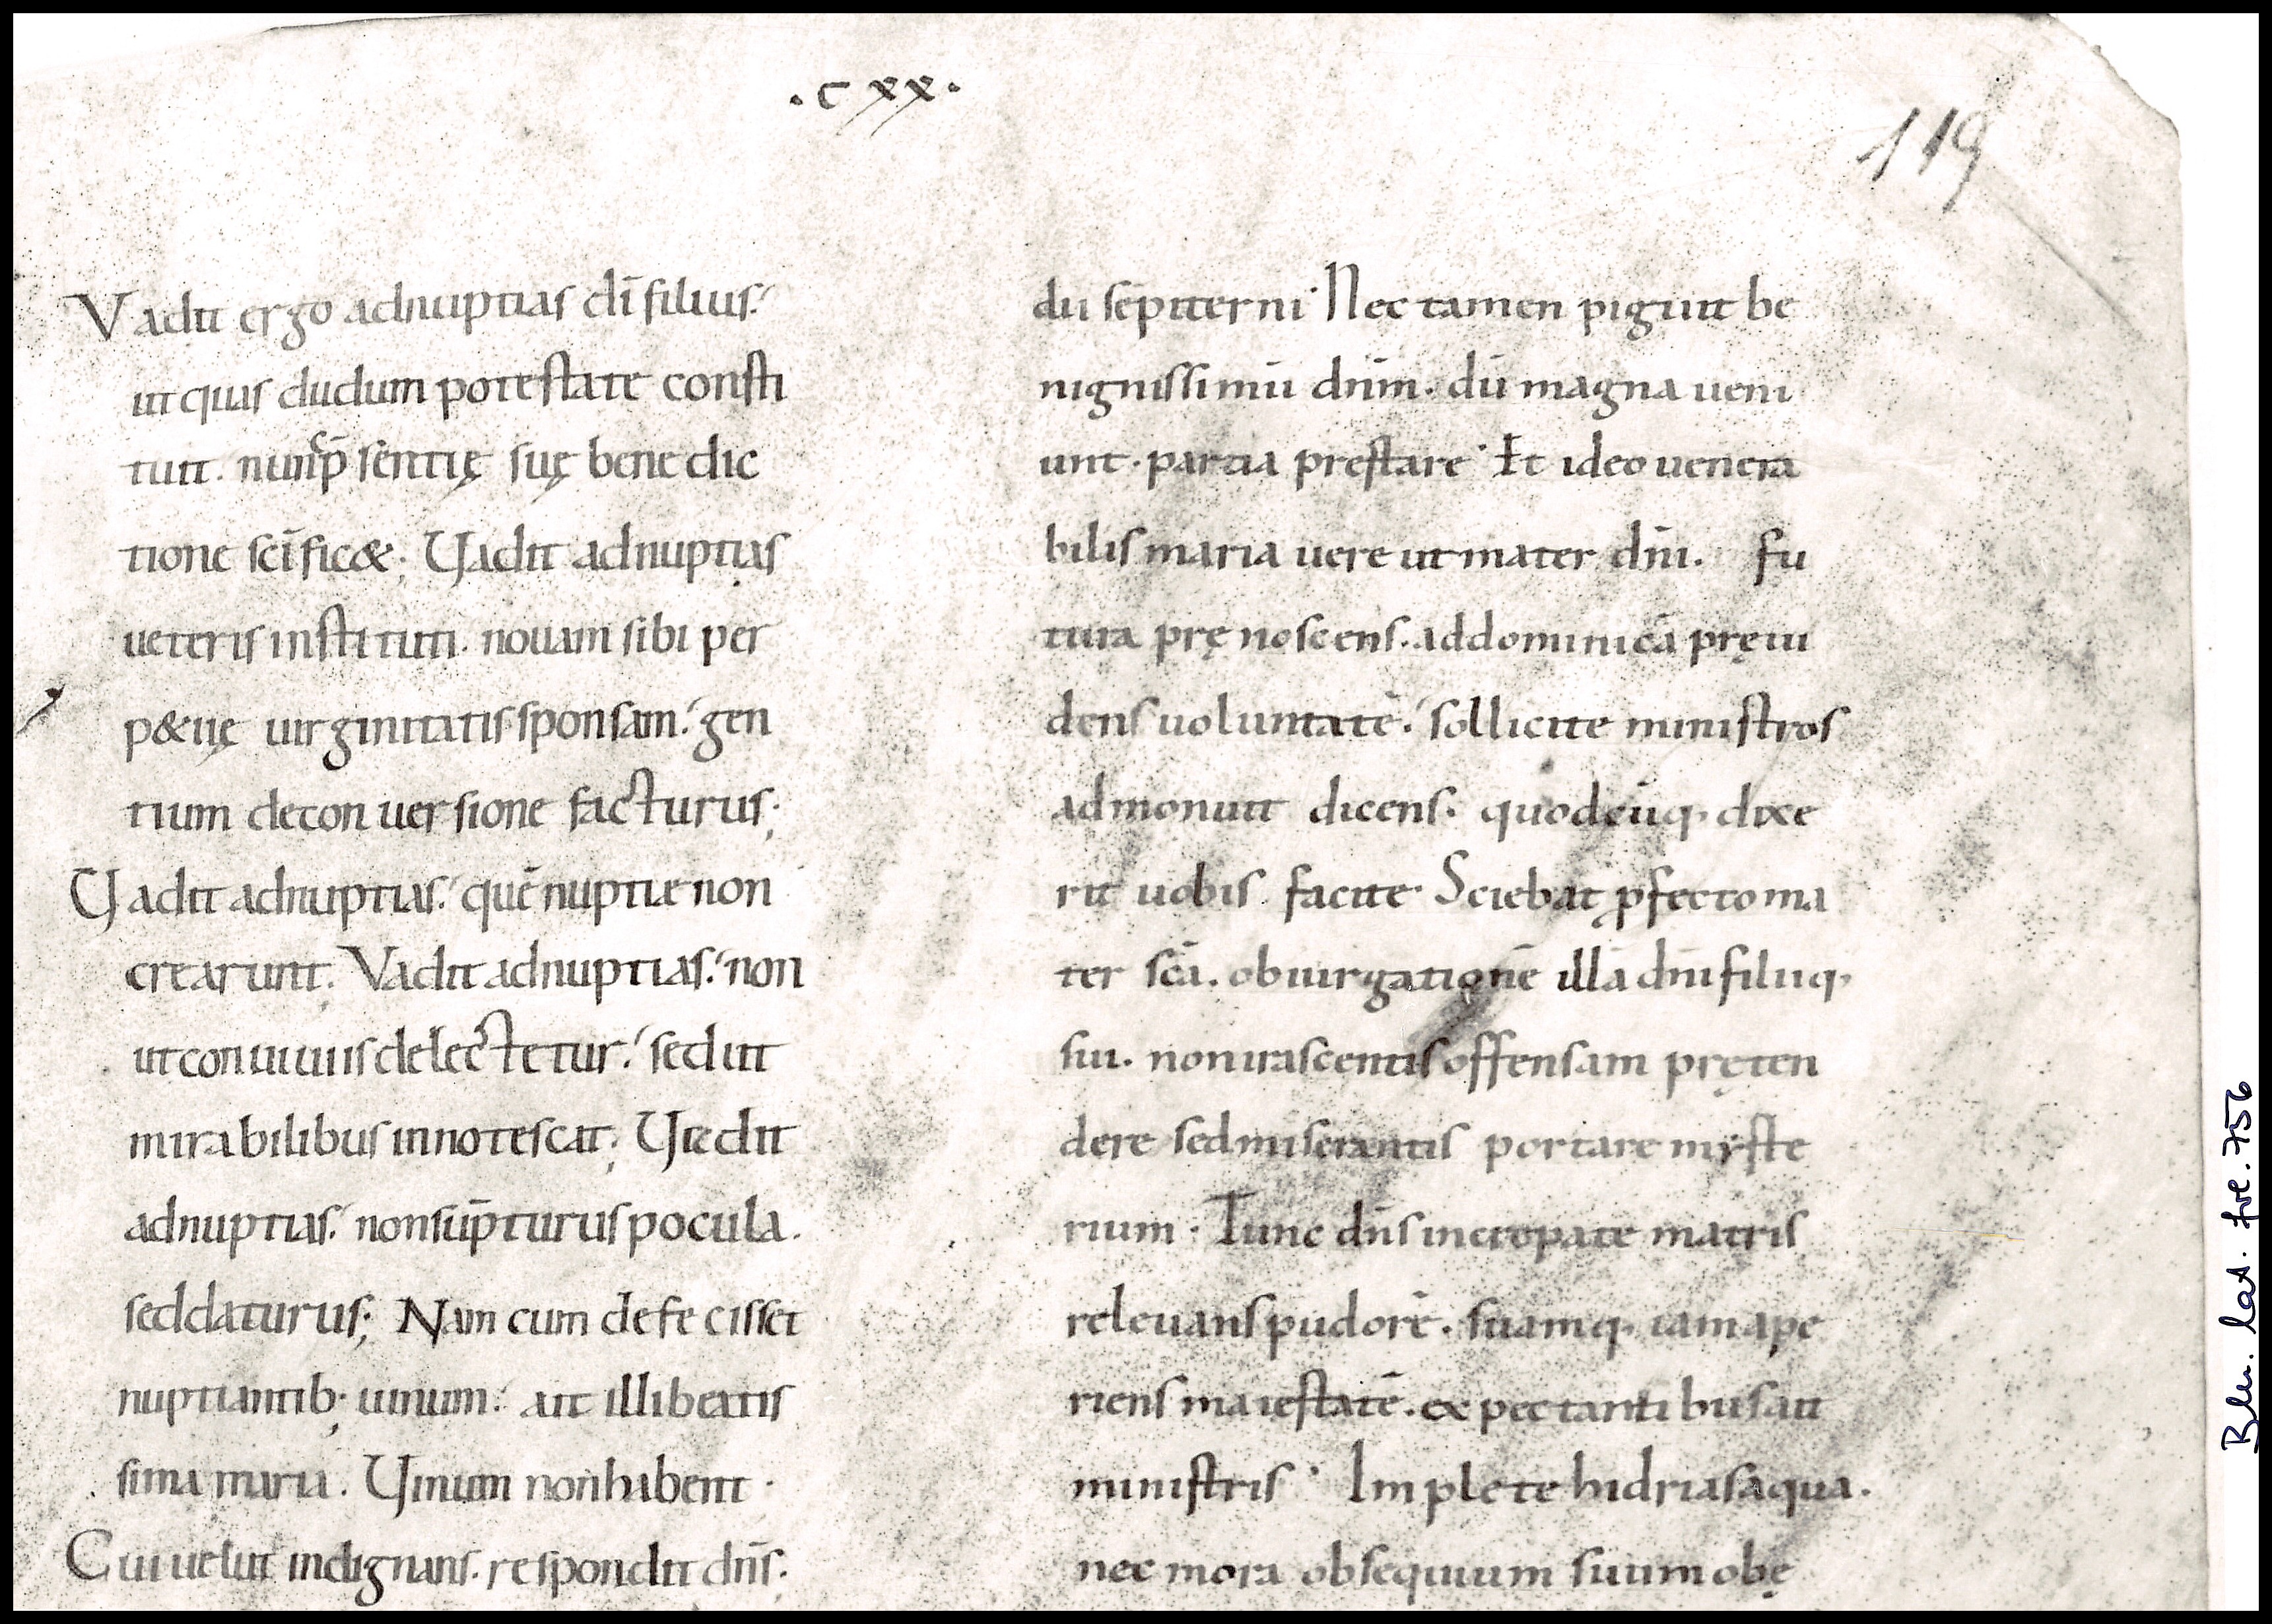 .cxx.
119
Vadit ergo adnuptias dī filius:
ut quas dudum potestate consti
tuit. nunc p̄sentię suę benedic
tione scīfic&; Vadit adnuptias
ueteris instituti. nouam sibi per
p&uę uirginitatis sponsam: gen
tium deconuersione facturus;
Vadit adnuptias: quē nuptiæ non
crearunt; Vadit adnuptias: non
ut conuiuiis delectetur: sed ut
mirabilibus innotescat; Vadit
adnuptias: nonsūpturus pocula.
seddaturus; Nam cum defecisset
nuptiantib; uinum: ait illi beatis
sima maria. Vinum nonhabent.
Cui uelut indignans. respondit dn̄s.
dii sēpiterni. Nec tamen piguit be
nignissimū dn̄m. dū magna ueni
unt. partia prestare. Et ideo uenera
bilis maria uere ut mater dn̄i. fu
tura prę noscens. addominicā pręui
dens uoluntatē: sollicite ministros
admonuit dicens. quodcūq. dixe
rit uobis facite. Sciebat pfecto ma
ter scā. obiurgationē illā dn̄i filiiq.
sui. nonirascentis offensam pręten
dere sedmiserantis portare myste
rium. Tunc dn̄s increpate matris
releuans pudorē. suamq. iam ape
riens maiestatē. expectantibus ait
ministris. Implete hidrias aqua.
nec mora obsequium suum obę
Bln. lat. fol. 756